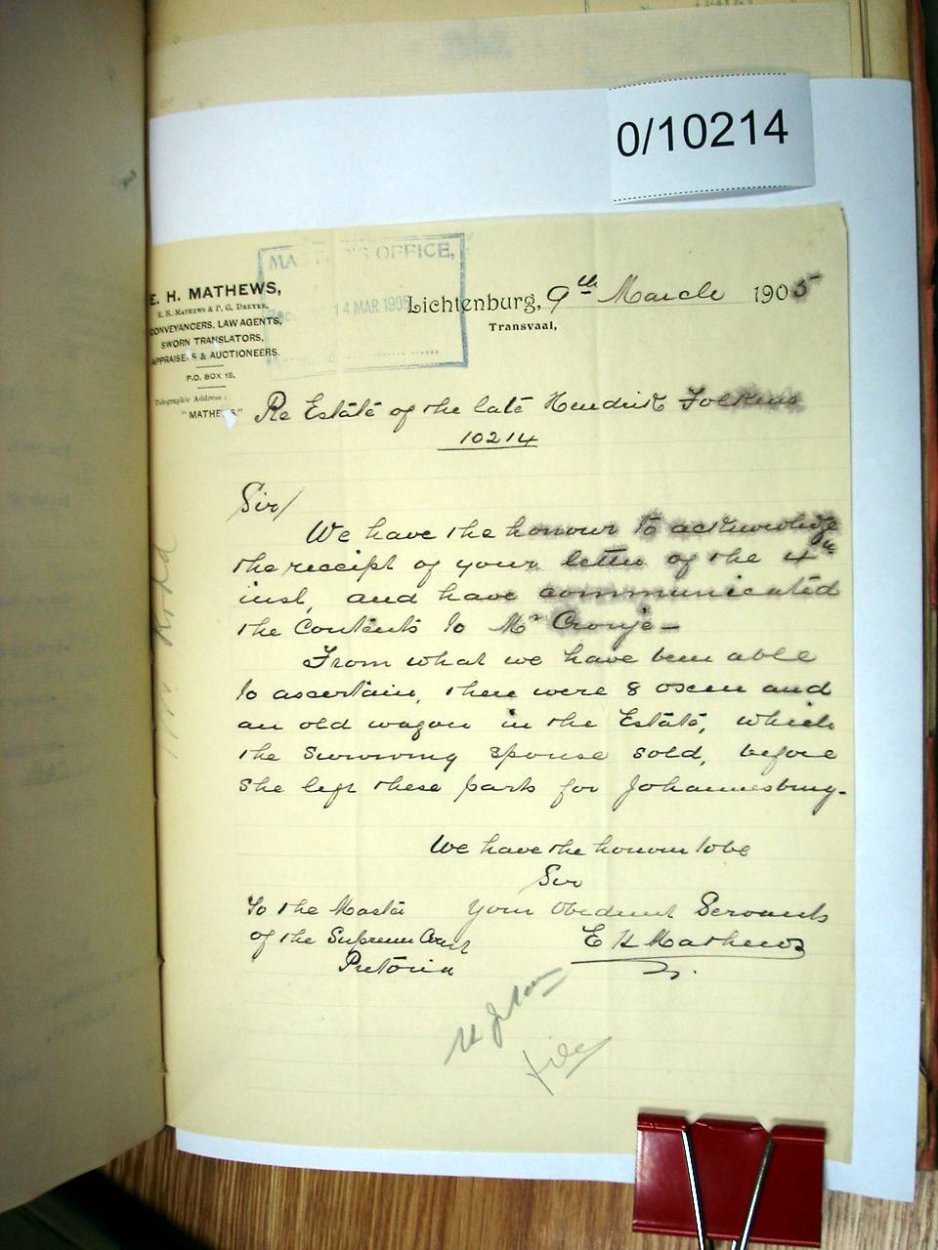 0/10214
MASTER'S OFFICE,
14 MAR 1905
E. H. MATHEWS,
E. H. MATHEWS & P. G. DREYER,
CONVEYANCERS, LAW AGENTS,
SWORN TRANSLATORS,
APPRAISERS & AUCTIONEERS.
P.O. BOX 15.
Telegraphic Address:
"MATHEWS."
Lichtenburg, 9th March 1905
Transvaal,
Re Estate of the late Hendrik
10214
Sir/
We have the honour to acknowledge
the receipt of your letter of the 4th
inst, and have communicated
the Contents to Mr Cronje—
From what we have been able
to ascertain, there were 8 oxen and
an old wagon in the Estate, which
the surviving spouse sold, before
she left these parts for Johannesburg.
We have the honour to be
Sir
Your Obedient Servants
E H Mathews
To the Master
of the Supreme Court
Pretoria
File